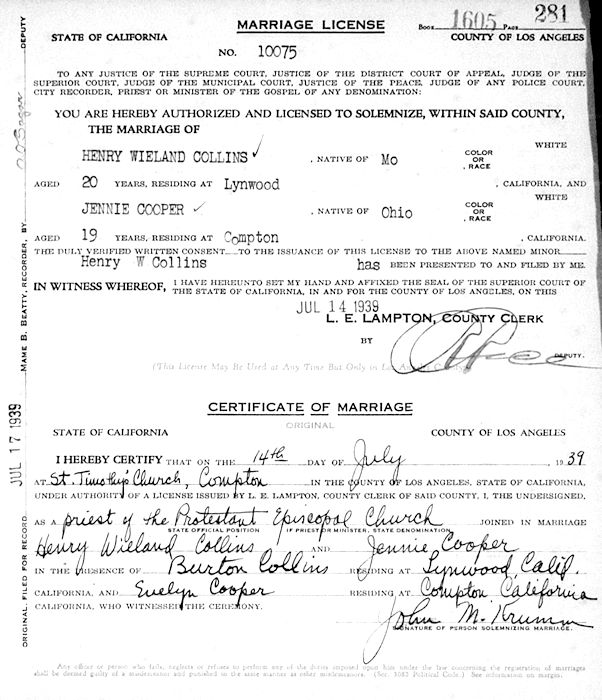 MARRIAGE LICENSE
BOOK 1605 PAGE 281
STATE OF CALIFORNIA
COUNTY OF LOS ANGELES
NO. 10075
TO ANY JUSTICE OF THE SUPREME COURT, JUSTICE OF THE DISTRICT COURT OF APPEAL, JUDGE OF THE
SUPERIOR COURT, JUDGE OF THE MUNICIPAL COURT, JUSTICE OF THE PEACE, JUDGE OF ANY POLICE COURT,
CITY RECORDER, PRIEST OR MINISTER OF THE GOSPEL OF ANY DENOMINATION:
YOU ARE HEREBY AUTHORIZED AND LICENSED TO SOLEMNIZE, WITHIN SAID COUNTY,
THE MARRIAGE OF
HENRY WIELAND COLLINS , NATIVE OF Mo COLOR OR RACE WHITE
AGED 20 YEARS, RESIDING AT Lynwood , CALIFORNIA, AND
JENNIE COOPER , NATIVE OF Ohio COLOR OR RACE WHITE
AGED 19 YEARS, RESIDING AT Compton , CALIFORNIA.
THE DULY VERIFIED WRITTEN CONSENT TO THE ISSUANCE OF THIS LICENSE TO THE ABOVE NAMED MINOR
Henry W Collins has BEEN PRESENTED TO AND FILED BY ME.
IN WITNESS WHEREOF, I HAVE HEREUNTO SET MY HAND AND AFFIXED THE SEAL OF THE SUPERIOR COURT OF
THE STATE OF CALIFORNIA, IN AND FOR THE COUNTY OF LOS ANGELES, ON THIS
JUL 14 1939
L. E. LAMPTON, COUNTY CLERK
BY DEPUTY.
(This License May Be Used at Any Time But Only in Los Angeles County)
CERTIFICATE OF MARRIAGE
ORIGINAL
STATE OF CALIFORNIA
COUNTY OF LOS ANGELES
I HEREBY CERTIFY THAT ON THE 14th DAY OF July 1939
AT St. Timothy's Church, Compton IN THE COUNTY OF LOS ANGELES, STATE OF CALIFORNIA,
UNDER AUTHORITY OF A LICENSE ISSUED BY L. E. LAMPTON, COUNTY CLERK OF SAID COUNTY, I, THE UNDERSIGNED,
AS A priest of the Protestant Episcopal Church JOINED IN MARRIAGE
STATE OFFICIAL POSITION IF PRIEST OR MINISTER, STATE DENOMINATION
Henry Wieland Collins AND Jennie Cooper
IN THE PRESENCE OF Burton Collins RESIDING AT Lynwood, Calif.
CALIFORNIA, AND Evelyn Cooper RESIDING AT Compton, California
CALIFORNIA, WHO WITNESSED THE CEREMONY.
John M. Krumm
SIGNATURE OF PERSON SOLEMNIZING MARRIAGE.
Any officer or person who fails, neglects or refuses to perform any of the duties imposed upon him under the law concerning the registration of marriages
shall be deemed guilty of a misdemeanor and punished in the same manner as other misdemeanors. (Sec. 3082 Political Code.) See information on margin.
ORIGINAL FILED FOR RECORD JUL 17 1939 MAME B. BEATTY, RECORDER, BY DEPUTY